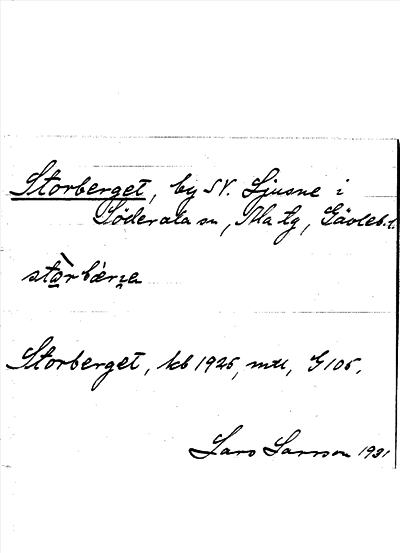 Storberget, by SV. Ljusne i
Söderala sn, Ala tg, Gävleb. l.
Storberget, kb 1925, mtl, G 105.
Lars Larsson 1931